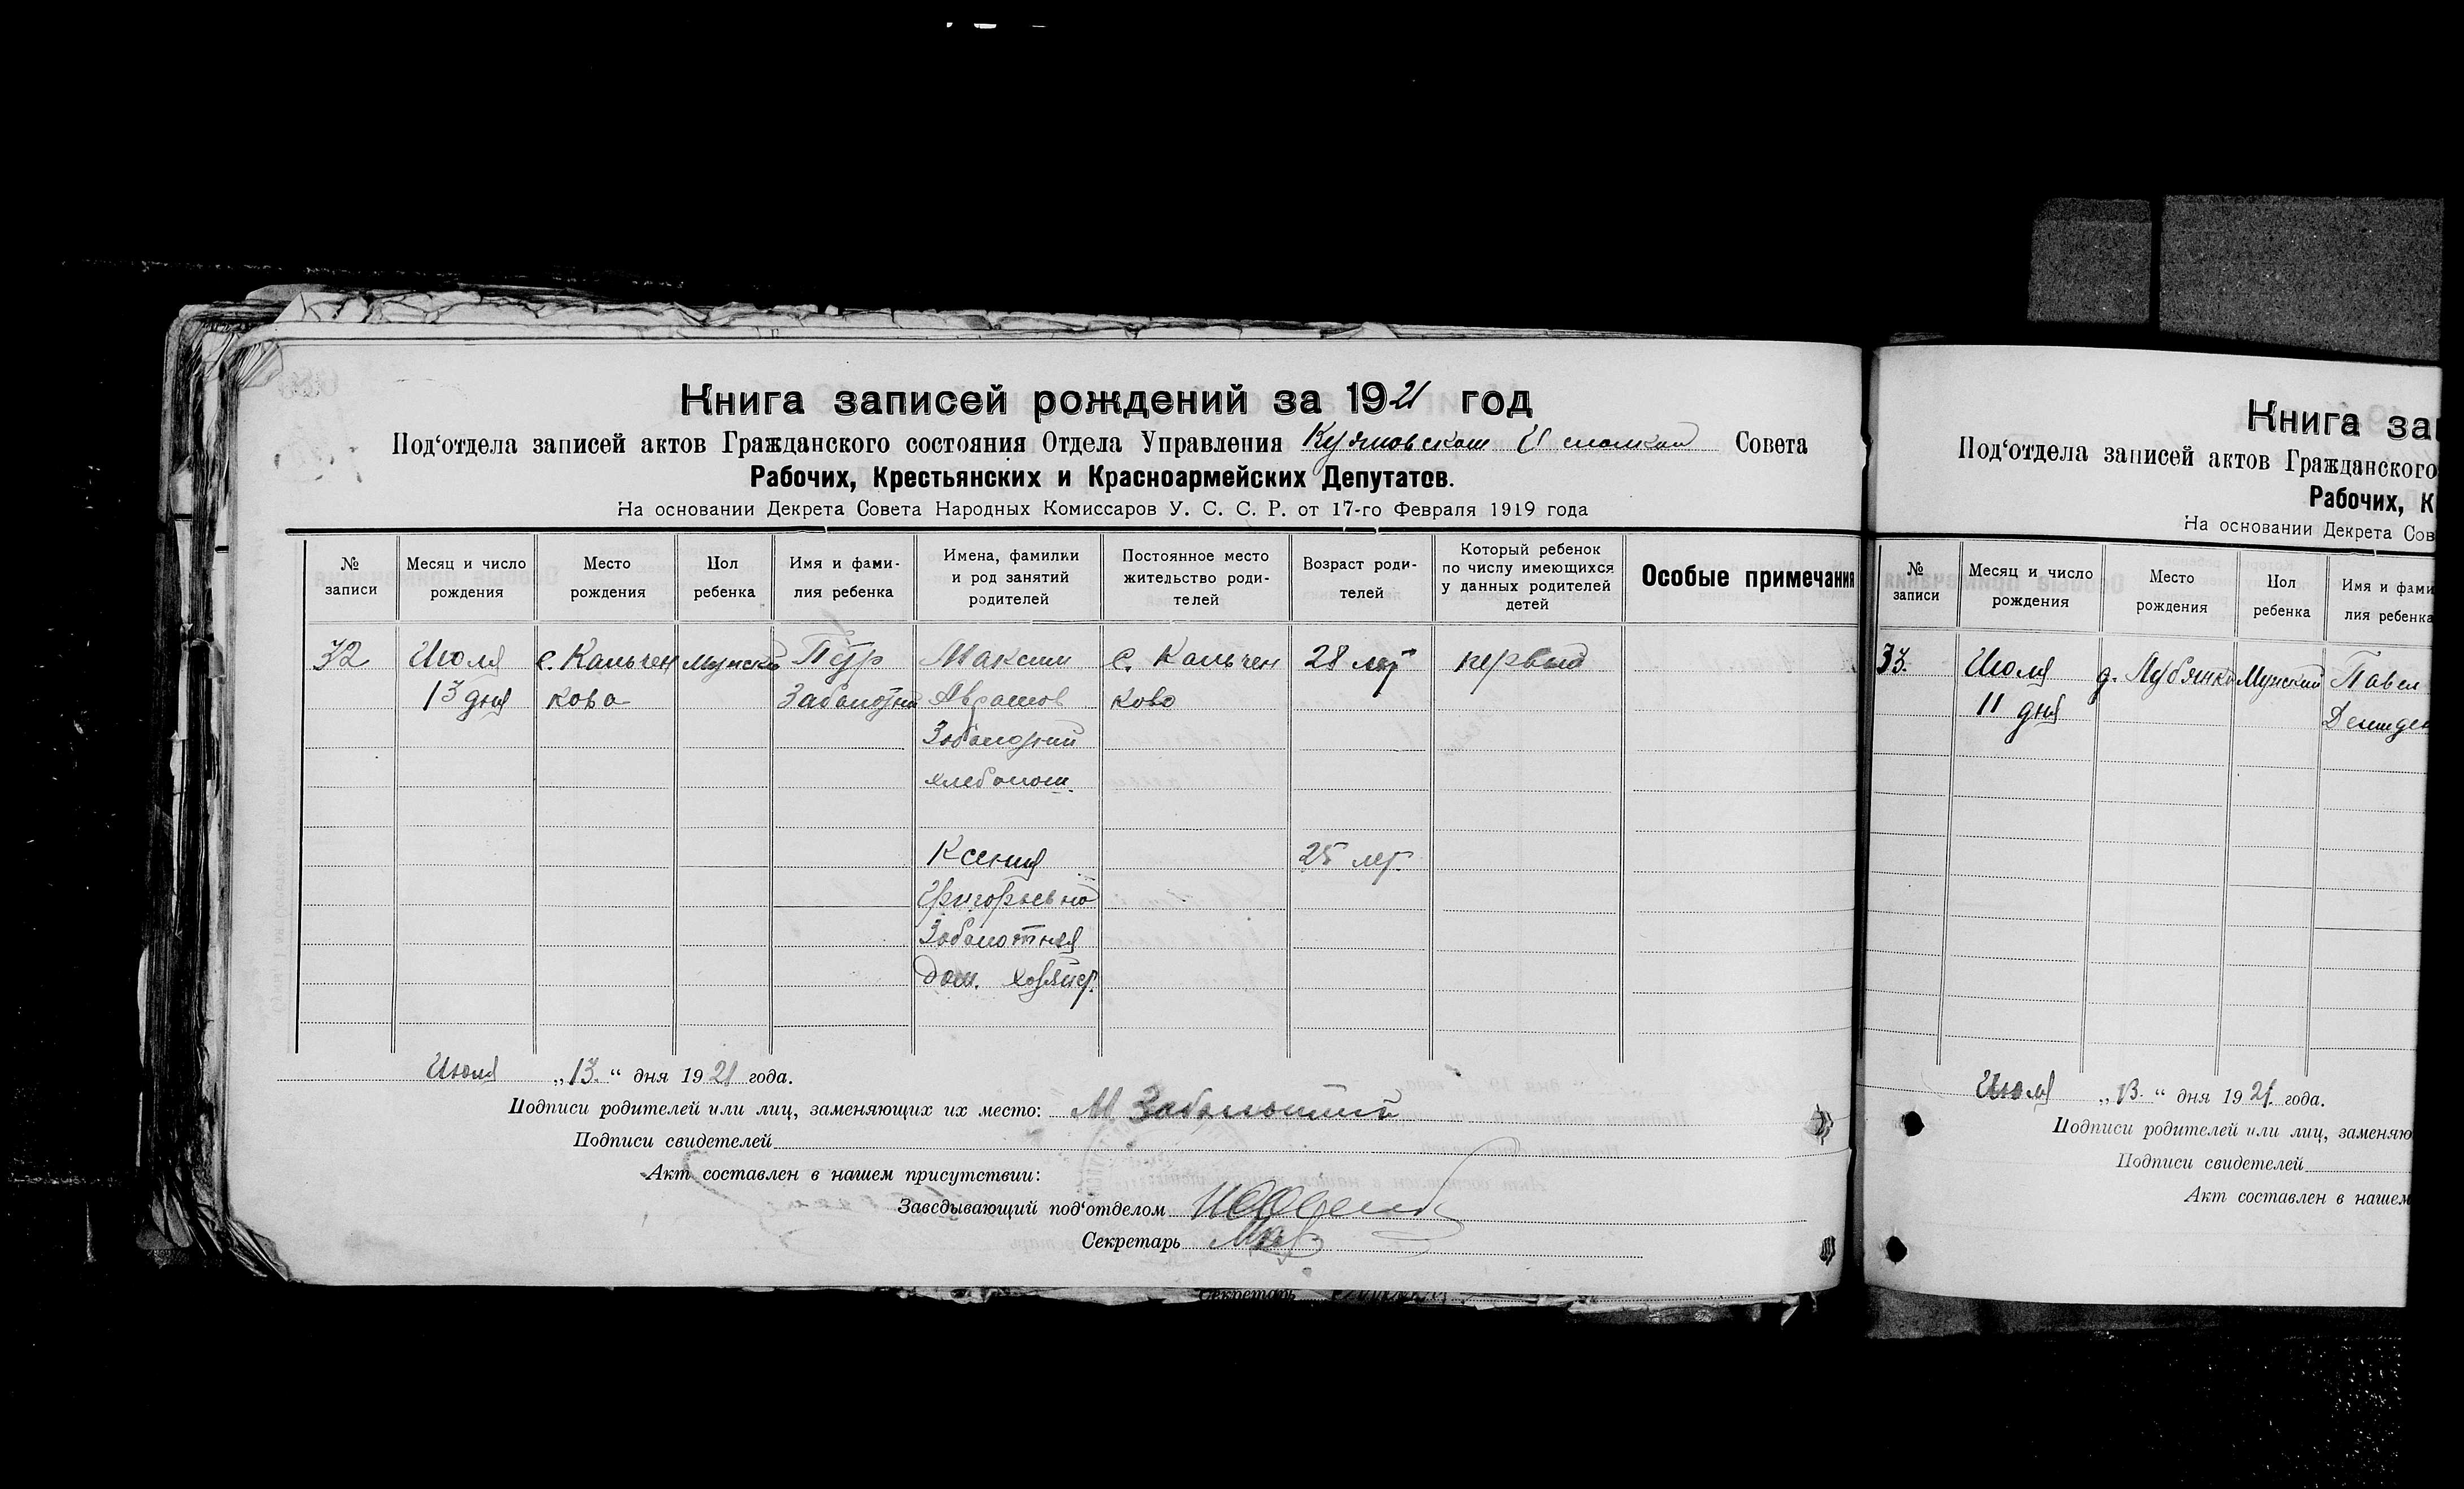 Книга записей рождений за 1921 год
Под‘отдела записей актов Гражданского состояния Отдела Управления Совета
Рабочих, Крестьянских и Красноармейских Депутатов.
На основании Декрета Совета Народных Комиссаров У. С. С. Р. от 17-го Февраля 1919 года
№ записи
Месяц и число рождения
Место рождения
Пол ребенка
Имя и фами-
лия ребенка
Имена, фамилии
и род занятий
родителей
Постоянное место
жительство роди-
телей
Возраст роди-
телей
Который ребенок
по числу имеющихся
у данных родителей
детей
Особые примечания
32 Июля с. Кальчен Мужской Петр Максим с. Кальчен 28 лет первый
13 дня кова Заболотний Аврамов ково
Заболотний
хлебопаш.
Ксения 25 лет.
Григорьевна
Заболотная
дом. хозяйст.
Июля „13.“ дня 1921 года.
Подписи родителей или лиц, заменяющих их место: М Заболотний
Подписи свидетелей
Акт составлен в нашем присутствии:
Заведывающий под‘отделом
Секретарь
Секретарь
Книга за
Под‘отдела записей актов Гражданского
Рабочих, К
На основании Декрета Сов
№ записи
Месяц и число рождения
Место рождения
Пол ребенка
Имя и фами
лия ребенка
33. Июля д. Мужский Павел
11 дня
Июля „13.“ дня 1921. года.
Подписи родителей или лиц, заменяю
Подписи свидетелей
Акт составлен в нашем